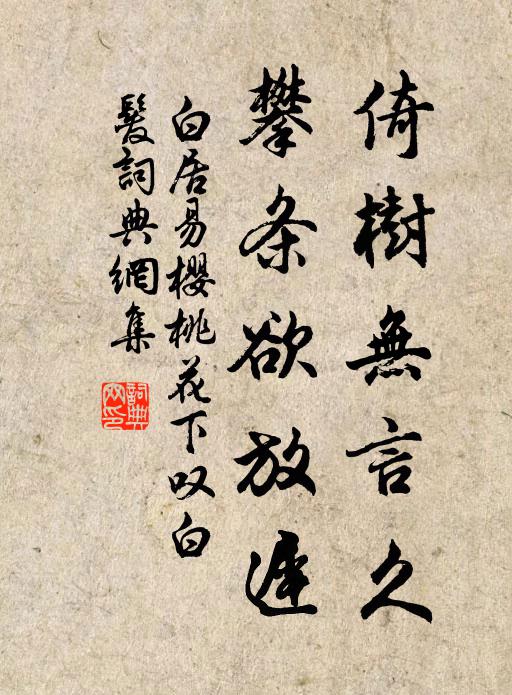 倚樹無言久
攀条欲放遲
白居易櫻桃花下叹白
髮詞典網集
詞典网印